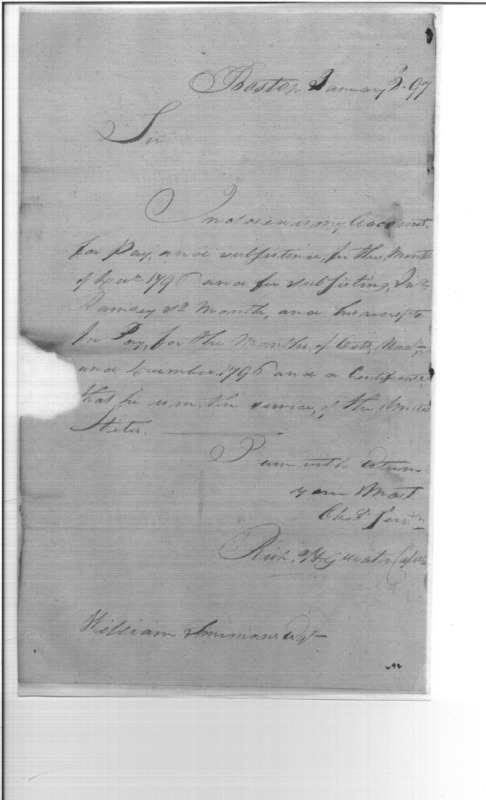 Boston January 8. 97
Sir
Inclosed is my Account
for Pay, and subsistence, for the Month
of Decr. 1796 and for subsisting,
Ramsey sd. Month, and his receipt
for Pay, for the Months of Octr. Novr.
and December 1796 and a Certificate
that he is in the service, of the United
States.
I am with esteem
your Most
Obdt. Servt.
Richd.
William Simmons Esqr